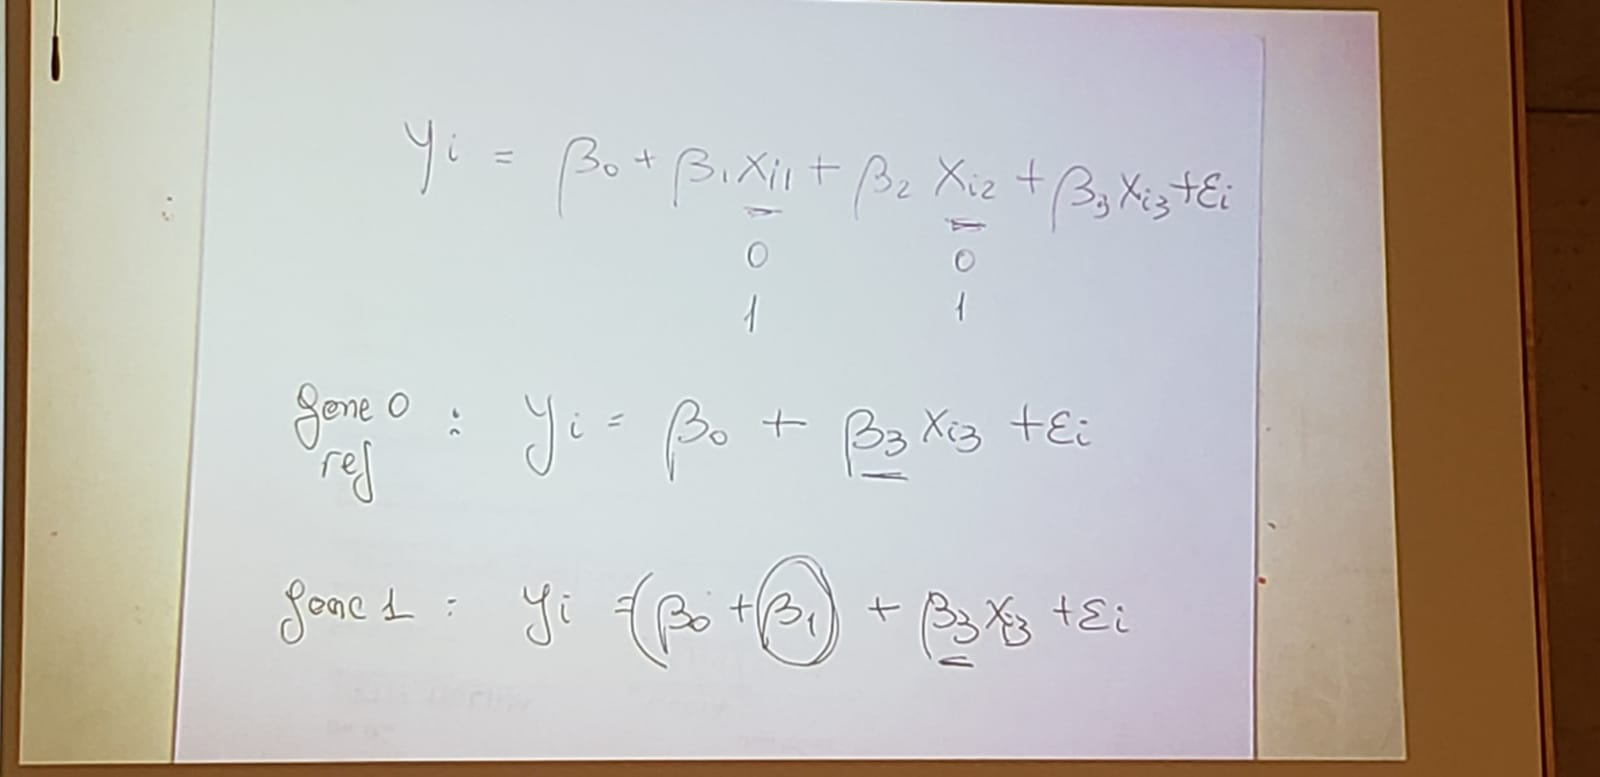 yi = β₀ + β₁xi1 + β₂ xi2 + β₃xi3 + εi
0 0
1 1
gene 0 : yi = β₀ + β₃ xi3 + εi
ref
gene 1 : yi = (β₀ + β₁) + β₃xi3 + εi